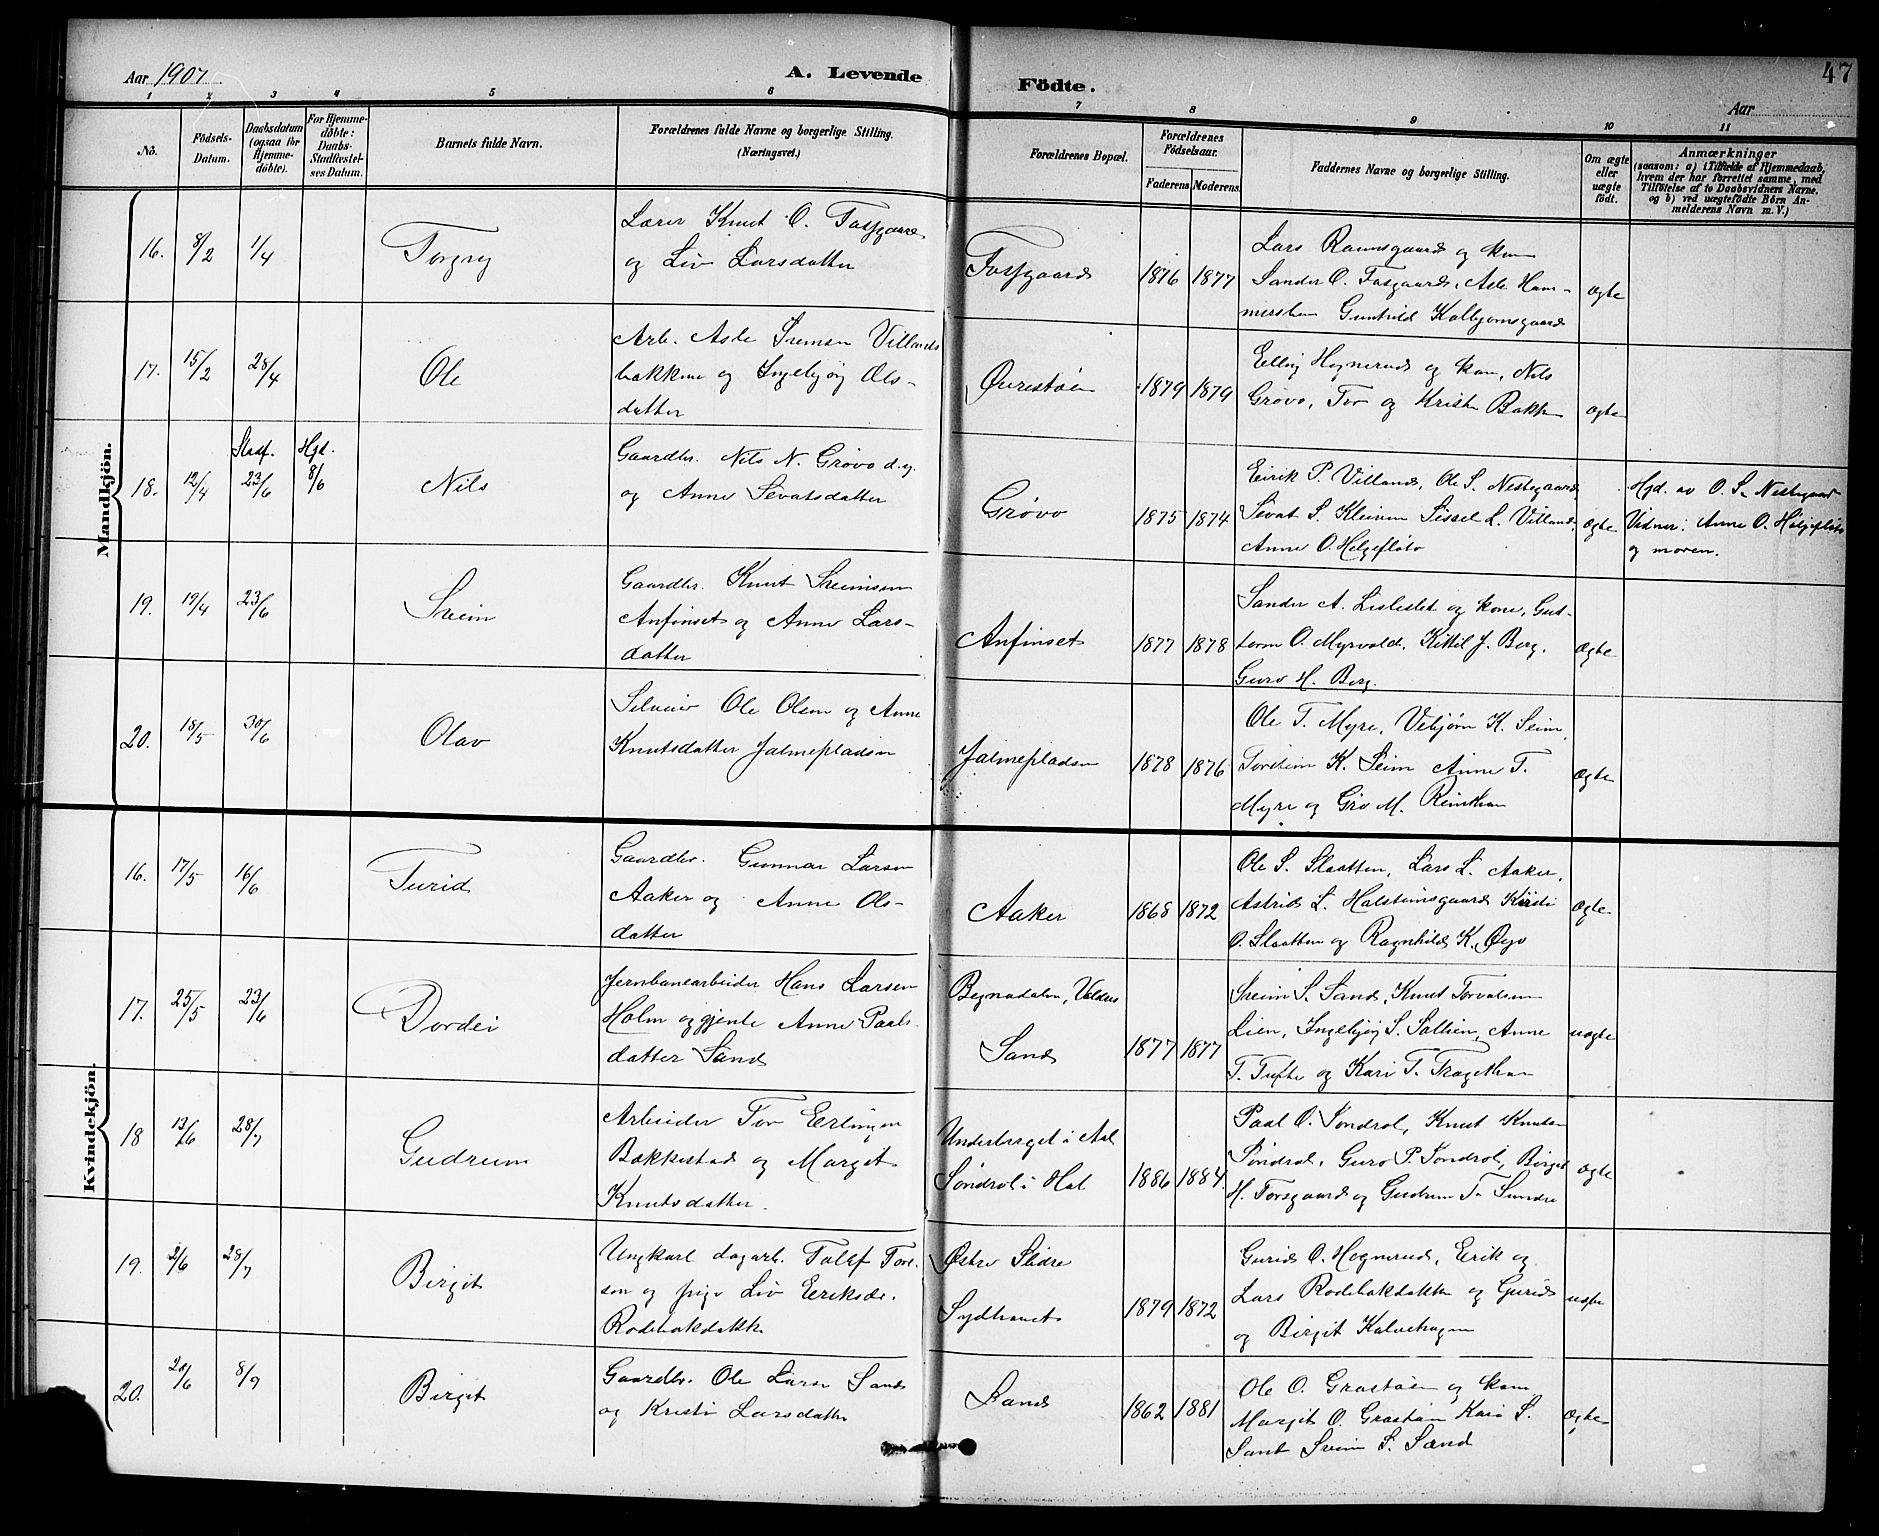 Aar 1907
A. Levende
Födte.
Aar
47
1 2 3 4 5 6 7 8 9 10 11
No.
Födsels-Datum.
Daabsdatum (ogsaa for Hjemmedöbte).
For Hjemmedöbte: Daabs-Stadfestelses Datum.
Barnets fulde Navn.
Forældrenes fulde Navne og borgerlige Stilling.
(Næringsvei.)
Forældrenes Bopæl.
Forældrenes Födselsaar.
Faderens Moderens.
Faddernes Navne og borgerlige Stilling.
Om ægte eller uægte födt.
Anmærkninger
(saasom: a) i Tilfælde af Hjemmedaab,
hvem der har forrettet samme, med
Tilföielse af to Daabsvidners Navne,
og b) ved uægtefödte Börn Anmelderens Navn m. V.)
Mandkjön.
16. 8/2 1/4 Torgny
Lærer Knut O. Tosgaard
og Liv Larsdatter
Tosgaard 1876 1877
Lars Raunsgaard og kone
Sander O. Tosgaard, Asle Ham-
mersbøen Gunhild Kolbjørnsgaard
ægte
17. 15/2 28/4 Ole
Arb. Asle Svensen Villands
bakkene og Ingebjørg Ols-
datter
Øvrestøen 1879 1879
Elling Hognerud og kone, Nils
Grøvo, Tor og Kristi Bakken
ægte
18. 12/4 Stadf. 23/6 Hjd. 8/6 Nils
Gaardbr. Nils N. Grøvo d.y.
og Anne Sevatsdatter
Grøvo 1875 1874
Eirik P. Villand, Ole S. Nestegaard
Sevat S. Kleiven Sissel L. Villand,
Anne O. Helgefløto
ægte
Hjd. av O. S. Nestegaard
Vidner: Anne O. Helgefløto
og moren.
19. 19/4 23/6 Svein
Gaardbr. Knut Sveinsen
Anfinset og Anne Lars-
datter
Anfinset 1877 1878
Sander A. Lisleslet og kone, Gut-
torm O. Myrvold, Kittil J. Berg,
Guro H. Berg.
ægte
20. 18/5 30/6 Olav
Selveier Ole Olsen og Anne
Knutsdatter Jalmepladsen
Jalmepladsen 1878 1876
Ole T. Myre, Vebjørn K. Seim,
Torstein K. Seim Anne T.
Myre og Gro M. Reinthon
ægte
Kvindekjön.
16. 17/5 16/6 Turid
Gaardbr. Gunnar Larsen
Aaker og Anne Ols-
datter
Aaker 1868 1872
Ole S. Slaatten, Lars L. Aaker,
Astrid L. Halsteinsgaard Kirsti
O. Slaatten og Ragnhild K. Øyo
ægte
17. 25/5 23/6 Dordei
Jernbanearbeider Hans Larsen
Holm og gjente Anne Paals-
datter Sand
Begnadalen, Valdres
Sand 1877 1877
Svein S. Sand, Knut Torvalsen
Lien, Ingebjørg S. Solhein, Anne
T. Tufte og Kari T. Tragethon
uægte
18 13/6 28/7 Gudrun
Arbeider Tor Erlingsen
Bakkestad og Margit
Knutsdatter.
Underberget i Aal
Søndrol i Hol 1886 1884.
Paal O. Søndrol, Knut Knutsen
Søndrol, Guro P. Søndrol, Birgit
H. Torsgaard og Gudrun T. Sundre
ægte
19. 2/6 28/7 Birgit
Ungkarl dagarb. Tollef Tore-
son og pige Liv Eriksdr.
Rodebakdokk
Østre Slidre
Sydhaset 1879 1872
Gurid O. Hognerud, Erik og
Lars Rodebakdokk og Gurid
og Birgit Kalvehagen
uægte
20. 20/6 8/9 Birgit
Gaardbr. Ole Larsen Sand
og Kristi Larsdatter
Sand 1862 1881
Ole O. Grøstøen og kone
Margit O. Grøstøen Kari S.
Sand Svein S. Sand
ægte